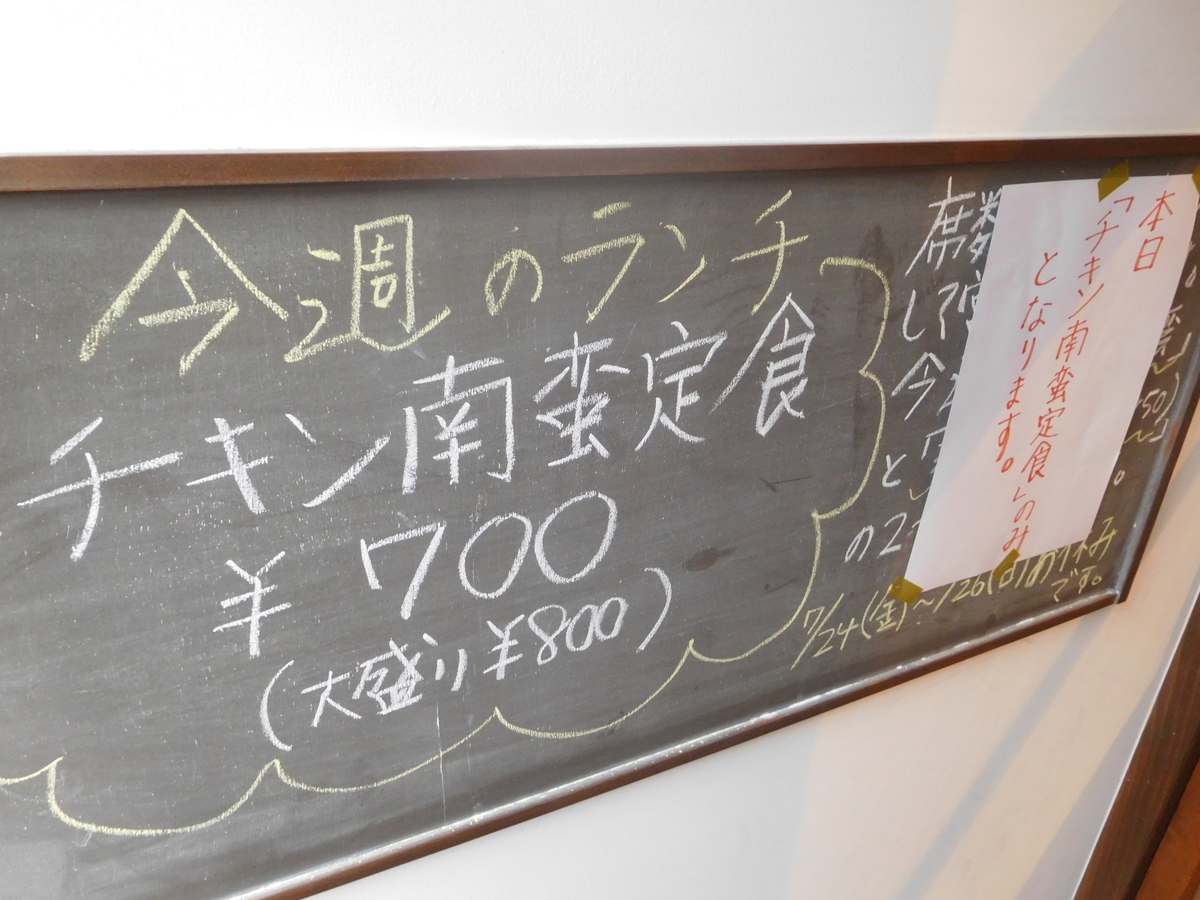 今週のランチ
チキン南蛮定食
¥700
(大盛り¥800)
席数
して
今
と
の2
7/24(金)～/26(日)お休み
です。
本日
「チキン南蛮定食」のみ
となります。